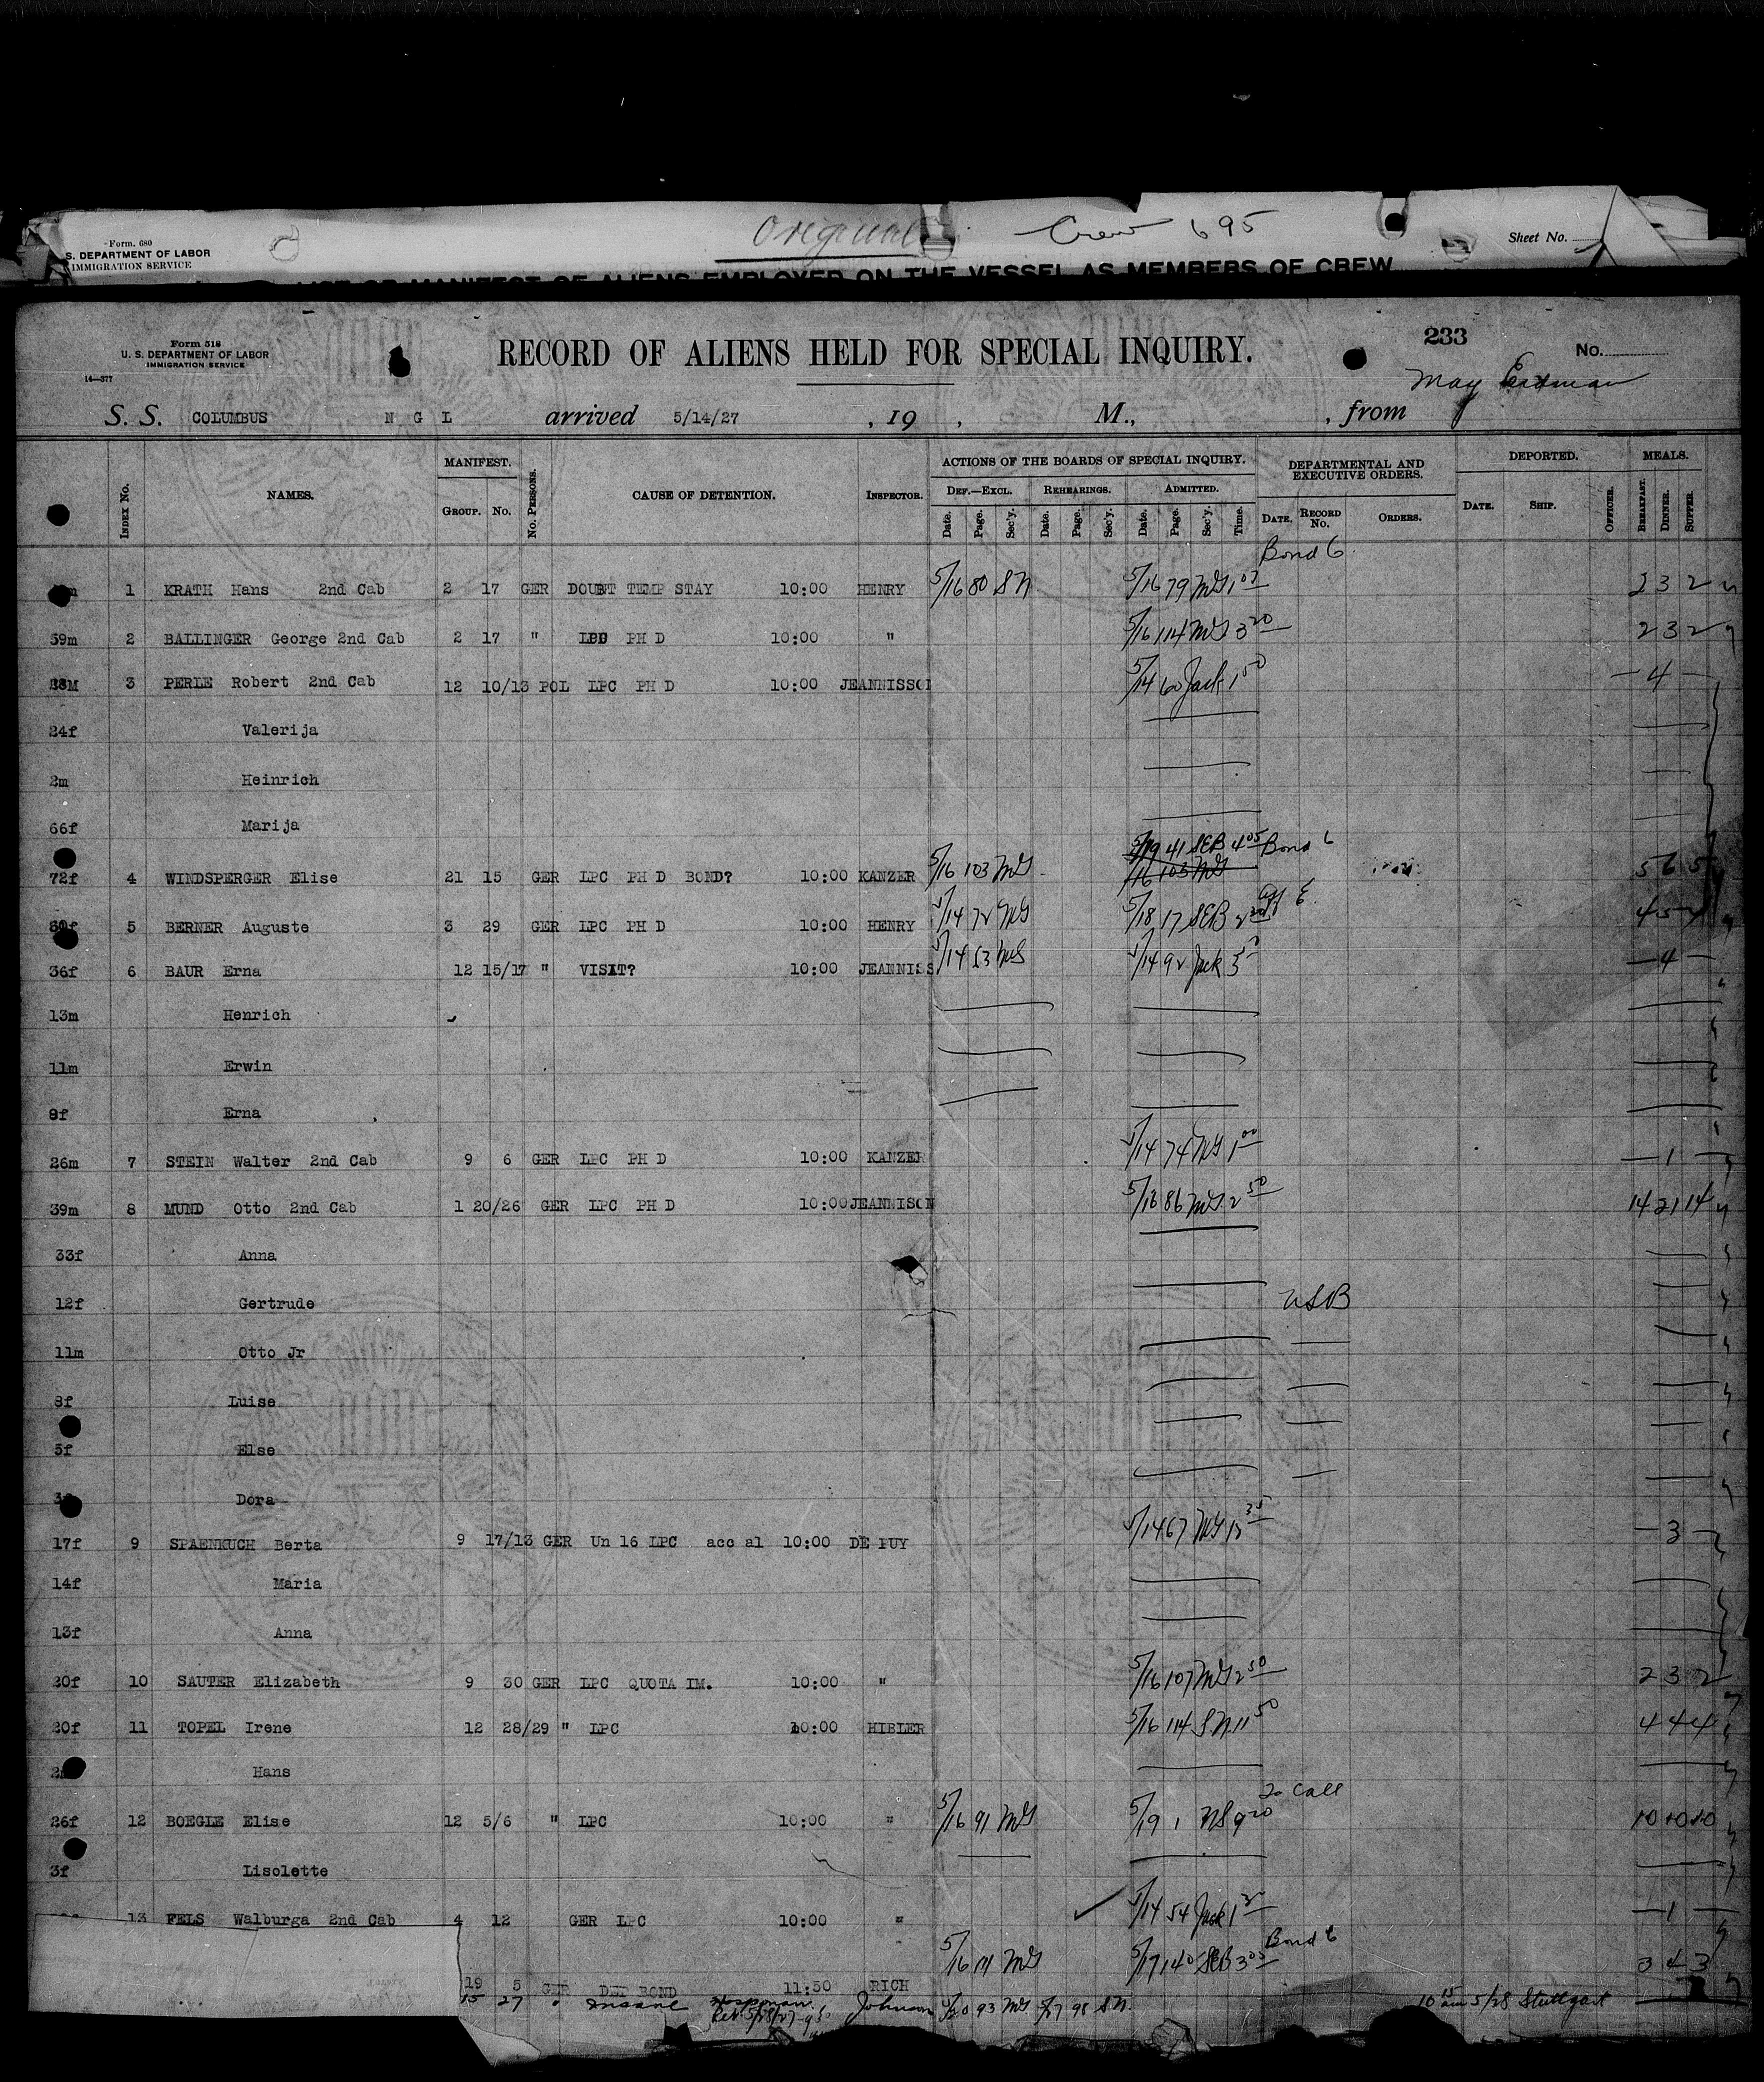 Form. 680
S. DEPARTMENT OF LABOR
IMMIGRATION SERVICE
Original
Crew 695
Sheet No.
LIST OR MANIFEST OF ALIENS EMPLOYED ON THE VESSEL AS MEMBERS OF CREW
Form 518
U. S. DEPARTMENT OF LABOR
IMMIGRATION SERVICE
14—377
RECORD OF ALIENS HELD FOR SPECIAL INQUIRY.
233
No.
May Erdman
S. S. COLUMBUS N G L arrived 5/14/27, 19 , M., , from
Index No. NAMES. MANIFEST. Group. No. No. Persons. CAUSE OF DETENTION. Inspector. ACTIONS OF THE BOARDS OF SPECIAL INQUIRY. Def.—Excl. Date. Page. Sec'y. Rehearings. Date. Page. Sec'y. Admitted. Date. Page. Sec'y. Time. DEPARTMENTAL AND EXECUTIVE ORDERS. Date. Record No. Orders. DEPORTED. Date. Ship. Officer. MEALS. Breakfast. Dinner. Supper.
Bond 6
1 KRATH Hans 2nd Cab 2 17 GER DOUBT TEMP STAY 10:00 HENRY 5/16 80 SN 5/16 79 MG 1 2 3 2
59m 2 BALLINGER George 2nd Cab 2 17 " PH D 10:00 " 5/16 114 MG 3 20 2 3 2
3 PERLE Robert 2nd Cab 12 10/13 POL LPC PH D 10:00 JEANNISSON 5/14 60 Jack 1 50 4
24f Valerija
2m Heinrich
66f Marija
5/19 41 SEB 4 05 Bond 6
72f 4 WINDSPERGER Elise 21 15 GER LPC PH D BOND? 10:00 KANZER 5/16 103 MG 5/16 103 MG 5 6 5
5 BERNER Auguste 3 29 GER LPC PH D 10:00 HENRY 5/14 72 MG 5/18 17 SEB 4 5
36f 6 BAUR Erna 12 15/17 " VISIT? 10:00 JEANNISS 5/14 53 5/14 92 Jack 4
13m Henrich
11m Erwin
8f Erna
26m 7 STEIN Walter 2nd Cab 9 6 GER LPC PH D 10:00 KANZER 5/14 74 MG 1 00 1
39m 8 MUND Otto 2nd Cab 1 20/26 GER LPC PH D 10:00 JEANNISON 5/16 86 MG 2 50 14 21 14
33f Anna
12f Gertrude
11m Otto Jr
8f Luise
5f Else
Dora
17f 9 SPAENKUCH Berta 9 17/13 GER Un 16 LPC acc al 10:00 DE PUY 5/14 67 MG 3
14f Maria
13f Anna
20f 10 SAUTER Elizabeth 9 30 GER LPC QUOTA IM. 10:00 " 5/16 107 MG 2 50 2 3 2
20f 11 TOPEL Irene 12 28/29 " LPC 10:00 HIBLER 5/16 114 S.N. 11 50 4 4 4
Hans
To Call
26f 12 BOEGLE Elise 12 5/6 " LPC 10:00 " 5/16 91 MG 5/19 1 NS 9 20 10 10 10
3f Lisolette
13 FELS Walburga 2nd Cab 4 12 GER LPC 10:00 " 5/14 54 Jack 1 1
Bond 6
19 5 GER DEF BOND 11:50 RICH 5/16 111 MG 5/17 140 SEB 3 05 3 4 3
15 27 " Insane Johnson 93 MG 98 S.N. 10 15 am 5/28 Stuttgart